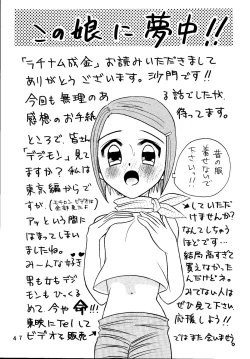 この娘に夢中!!
「ラチナム成金」お読みいただきまして
ありがとう ございます。沙門です!!
今回も無理のあ る話でしたが、
感想のお手紙 待ってます。
ところで、皆さん
「デジモン」見て
ますか?私は
東京編からです
が、
アッという間に
はまってしまい
ましたね。
みーんな好き
男も女もデジ
モンもひっくる
めて、今や命!!!
東映にTelして
ビデオを販売
していただ
けませんか?
なんてしちゃう
ほどです…
結局高すぎて
買えなかった
んだけどネ。
みてない人は
ぜひ見て下さい
応援しよう!!
ではまた会う日
昔の服
着せないで
下さいっ!!
47